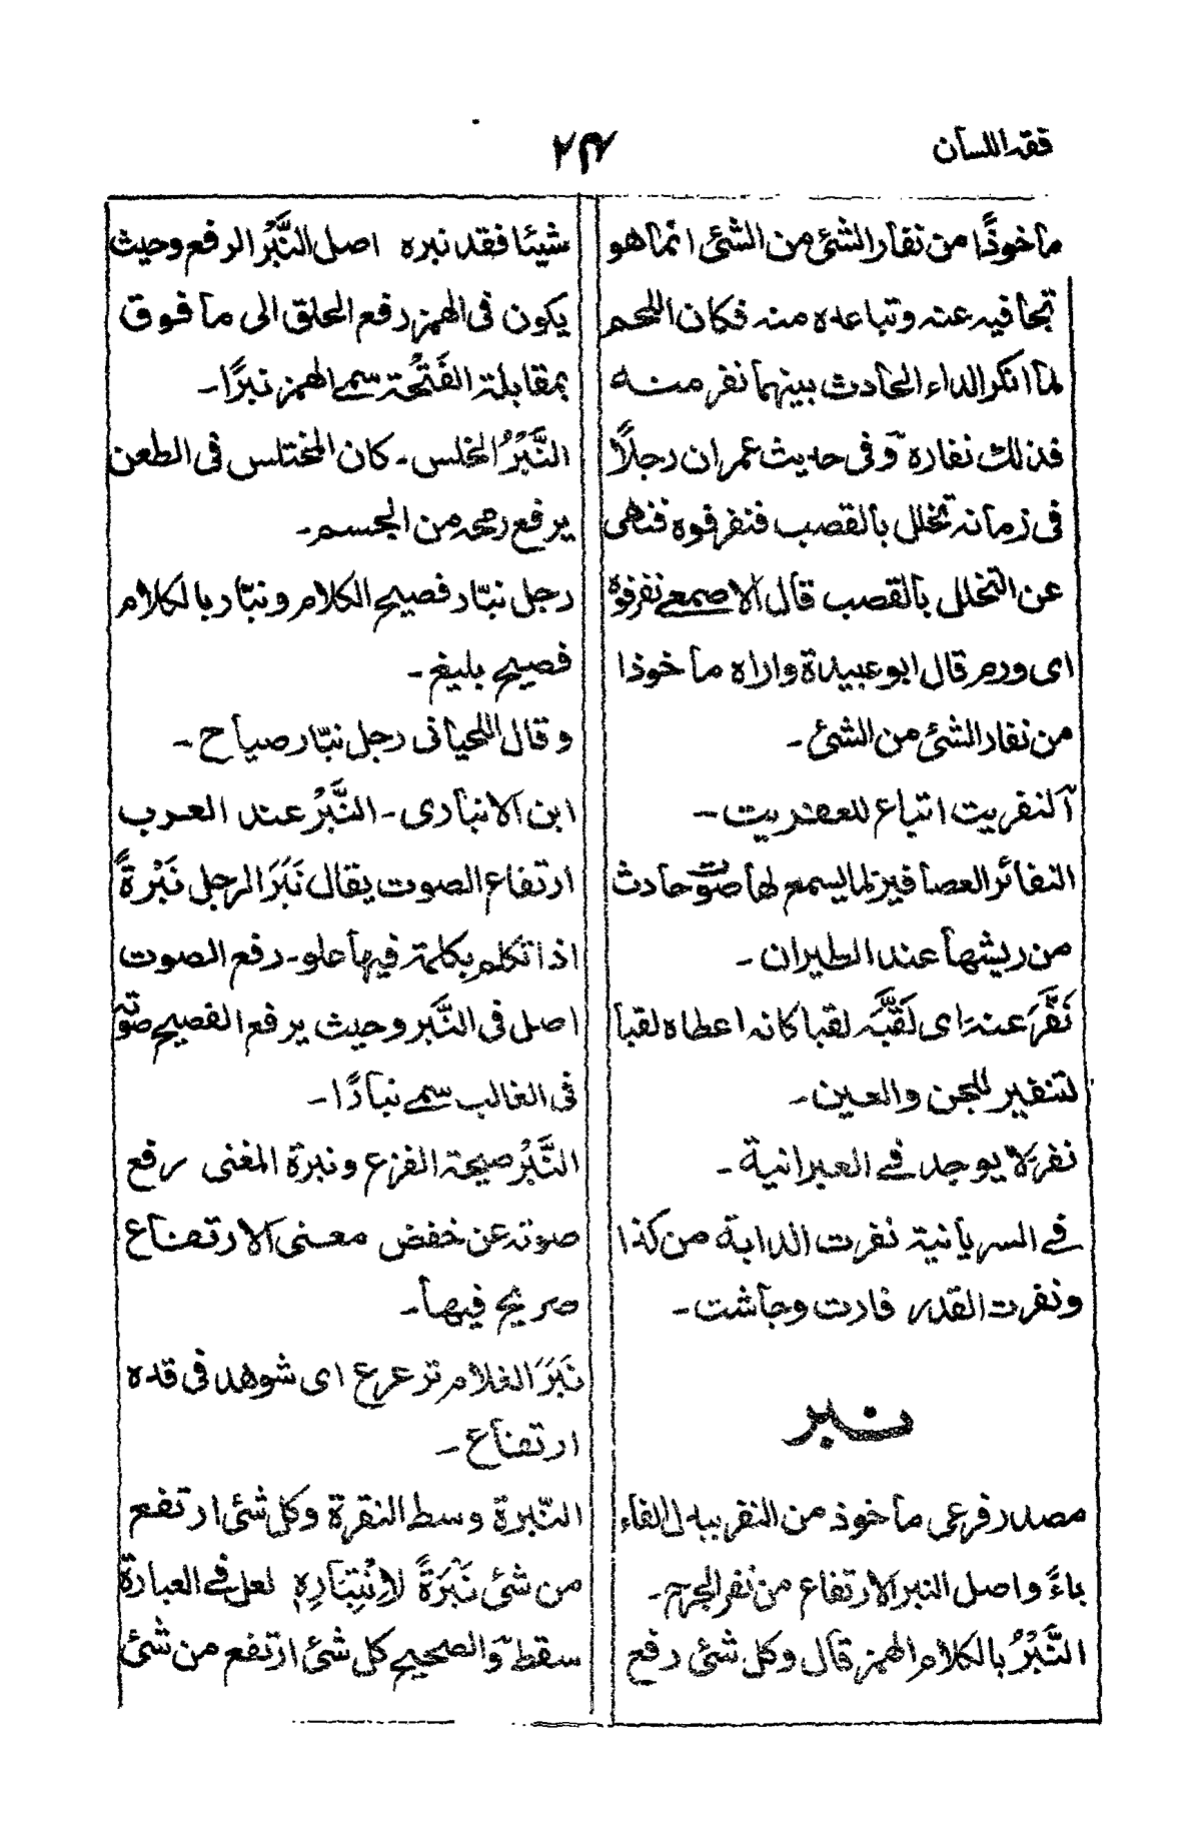 فقه اللسان
ماخوذًا من نفار الشئ من الشئ انما هو
تجافيه عنه وتباعده منه فكان اللحم
لما انكر الداء الحادث بينهما نفر منه
فذلك نفاره وفى حديث عمران رجلاً
فى زمانه تخلل بالقصب فنفر فوه فنهى
عن التخلل بالقصب قال الاصمعے نفر فوه
اى ورم قال ابو عبيدة واراه ماخوذا
من نفار الشئ من الشئ ـ
النفريت اتباع للعفريت ـ
النفائر العصافير لما يسمع لها صوت حادث
من ريشها عند الطيران ـ
نَفَّرَ عنه اى لَقَّبَه لقبا كانه اعطاه لقبا
لتنفير للجن والعين ـ
نفر لا يوجد فے العبرانية ـ
فے السريانية نفرت الدابة من كذا
ونفرت القدر فارت وجاشت ـ
نبر
مصدر فرعى ماخوذ من النفر ببدل الفاء
باءً واصل النبر الارتفاع من نفر الجرح ـ
النَّبْرُ بالكلام الهمز قال وكل شئ رفع
شيئا فقد نبره اصل النَّبْرُ الرفع وحيث
يكون فى الهمز رفع الحلق الى ما فوق
بمقابلة الفَتْحَة سمے الهمز نبرًا ـ
النَّبْرُ الخلس ـ كان المختلس فى الطعن
يرفع رمحه من الجسم ـ
رجل نبّار فصيح الكلام ونبّار بالكلام
فصيح بليغ ـ
وقال اللحيانى رجل نبّار صياح ـ
ابن الانبارى ـ النَّبْرُ عند العرب
ارتفاع الصوت يقال نَبَرَ الرجل نَبْرةً
اذا تكلم بكلمة فيها علو ـ رفع الصوت
اصل فى النَّبَر وحيث يرفع الفصيح صوته
فى الغالب سمے نبارًا ـ
النَّبْرُ صيحة الفزع ونبرة المغنى رفع
صوته عن خفض معنى الارتفاع
صريح فيها ـ
نَبَرَ الغلام ترعرع اى شوهد فى قده
ارتفاع ـ
النّبرة وسط النقرة وكل شئ ارتفع
من شئ نَبْرَةً لِانْتِبَارِهٖ لعل فے العبارة
سقط والصحيح كل شئ ارتفع من شئ